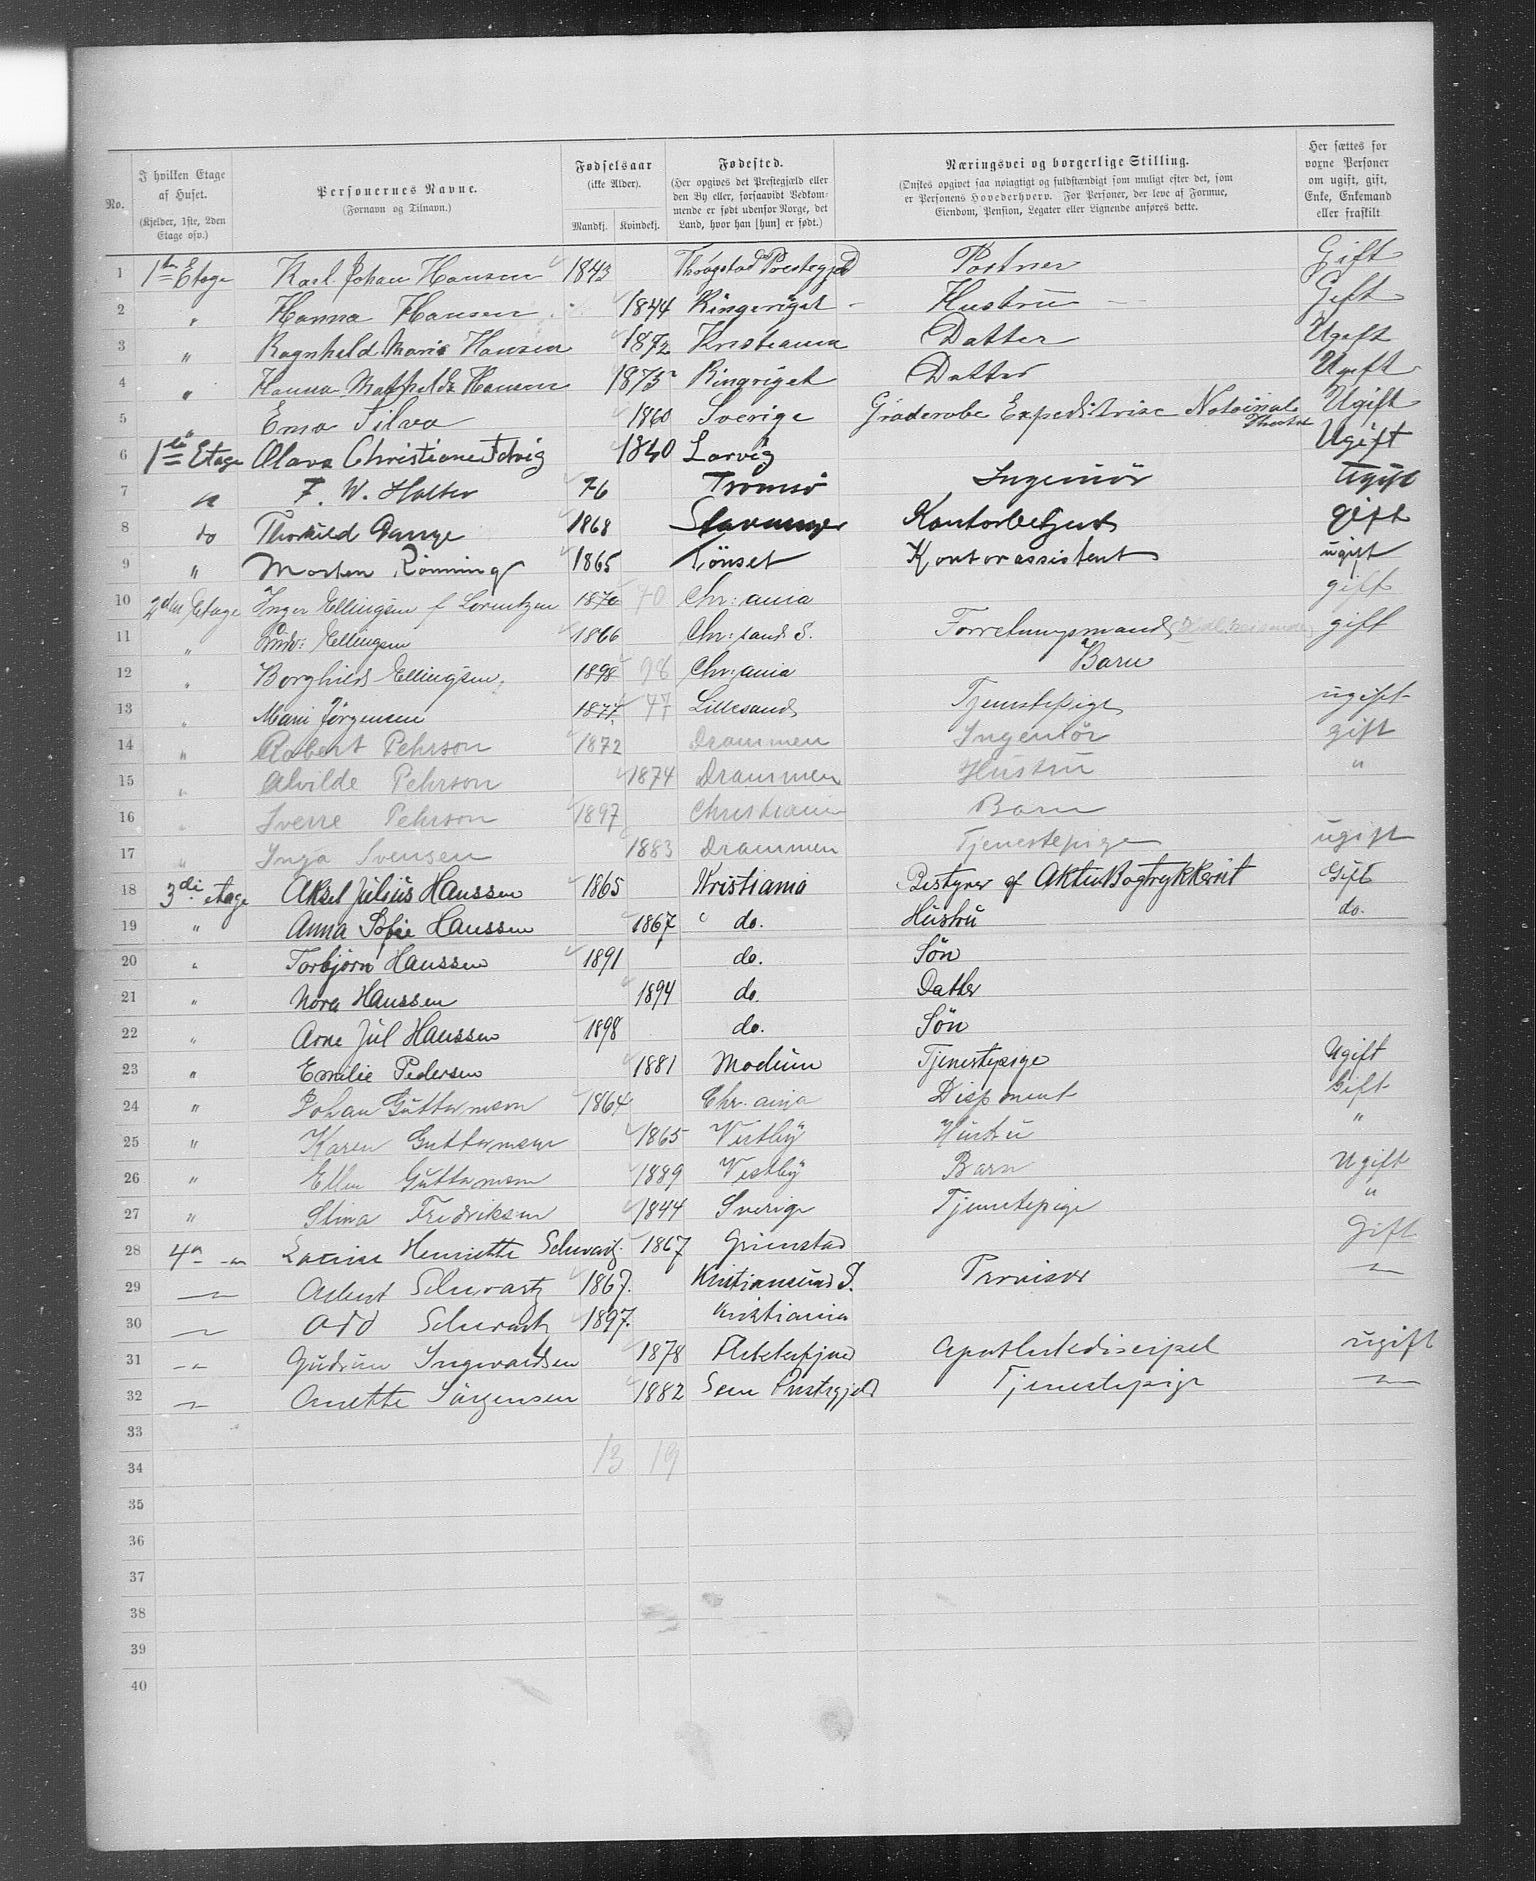 No.
I hvilken Etage af Huset.
(Kjelder, 1ste, 2den Etage osv.)
Personernes Navne.
(Fornavn og Tilnavn.)
Fødselsaar
(ikke Alder).
Mandkj. Kvindekj.
Fødested.
(Her opgives det Prestegjæld eller den By eller, forsaavidt Vedkommende er født udenfor Norge, det Land, hvor han [hun] er født.)
Næringsvei og borgerlige Stilling.
(Ønskes opgivet saa nøiagtigt og fuldstændigt som muligt efter det, som er Personens Hovederhverv. For Personer, der leve af Formue, Eiendom, Pension, Legater eller Lignende anføres dette.
Her sættes for voxne Personer om ugift, gift, Enke, Enkemand eller fraskilt
1 1ste Etage Karl Johan Hansen 1843 Prestegjeld Gift
2 " Hanna Hansen 1844 Ringeriget Hustru Gift
3 " Ragnhild Marie Hansen 1872 Kristiania Datter Ugift
4 " Hanna Mathilde Hansen 1875 Ringriget Datter Ugift
5 " Ema Silva 1860 Sverige Graderobe Expeditrise Theater Ugift
6 1ste Etage Olava Christiane 1840 Larvig Ugift
7 " F. W. Holter 76 Tromsø Ingeniør Ugift
8 do Thorkild 1868 Stavanger Kontorbetjent gift
9 " Morten Rönning 1865 Tönset Kontorassistent ugift
10 2den Etage Inger Ellingsen f Lorentzen 1870 70 Chr:ania gift
11 " Ellingsen 1866 Chr:sand S. Forretningsmand gift
12 " Borghild Ellingsen 1898 98 Chr:ania Barn
13 " Mari Jørgensen 1877 77 Lillesand Tjenestepige ugift
14 " Robert Pehrson 1872 Drammen Ingeniör gift
15 " Alvilde Pehrson 1874 Drammen Hustru "
16 " Sverre Pehrson 1897 Christiania Barn
17 " Inga Svensen 1883 Drammen Tjenestepige ugift
18 3die etage Aksel Julius Hanssen 1865 Kristiania Bestyrer af Gift
19 " Anna Sofie Hanssen 1867 " do. Hustru do.
20 " Torbjørn Hanssen 1891 do. Søn
21 " Nora Hanssen 1894 do. Datter
22 " Arne Jul Hanssen 1898 do. Søn
23 " Emilie Pedersen 1881 Modum Tjenestepige Ugift
24 " Johan Guttormsen 1864 Chr.ania Disponent Gift
25 " Karen Guttormsen 1865 Vestby Hustru "
26 " Ellen Guttormsen 1889 Vestby Barn Ugift
27 " Stina Fredriksen 1844 Sverige Tjenestepige "
28 4 Henriette Schwartz 1867 Grimstad Gift
29 Schwartz 1867. Kristiansund S. Provisor
30 Odd Schwartz 1897. Kristiania
31 Gudrun Ingvaldsen 1878 Apothekediscipel ugift
32 Anette Jørgensen 1882 Sem Prestegjeld Tjenestepige
33
34 13 19
35
36
37
38
39
40